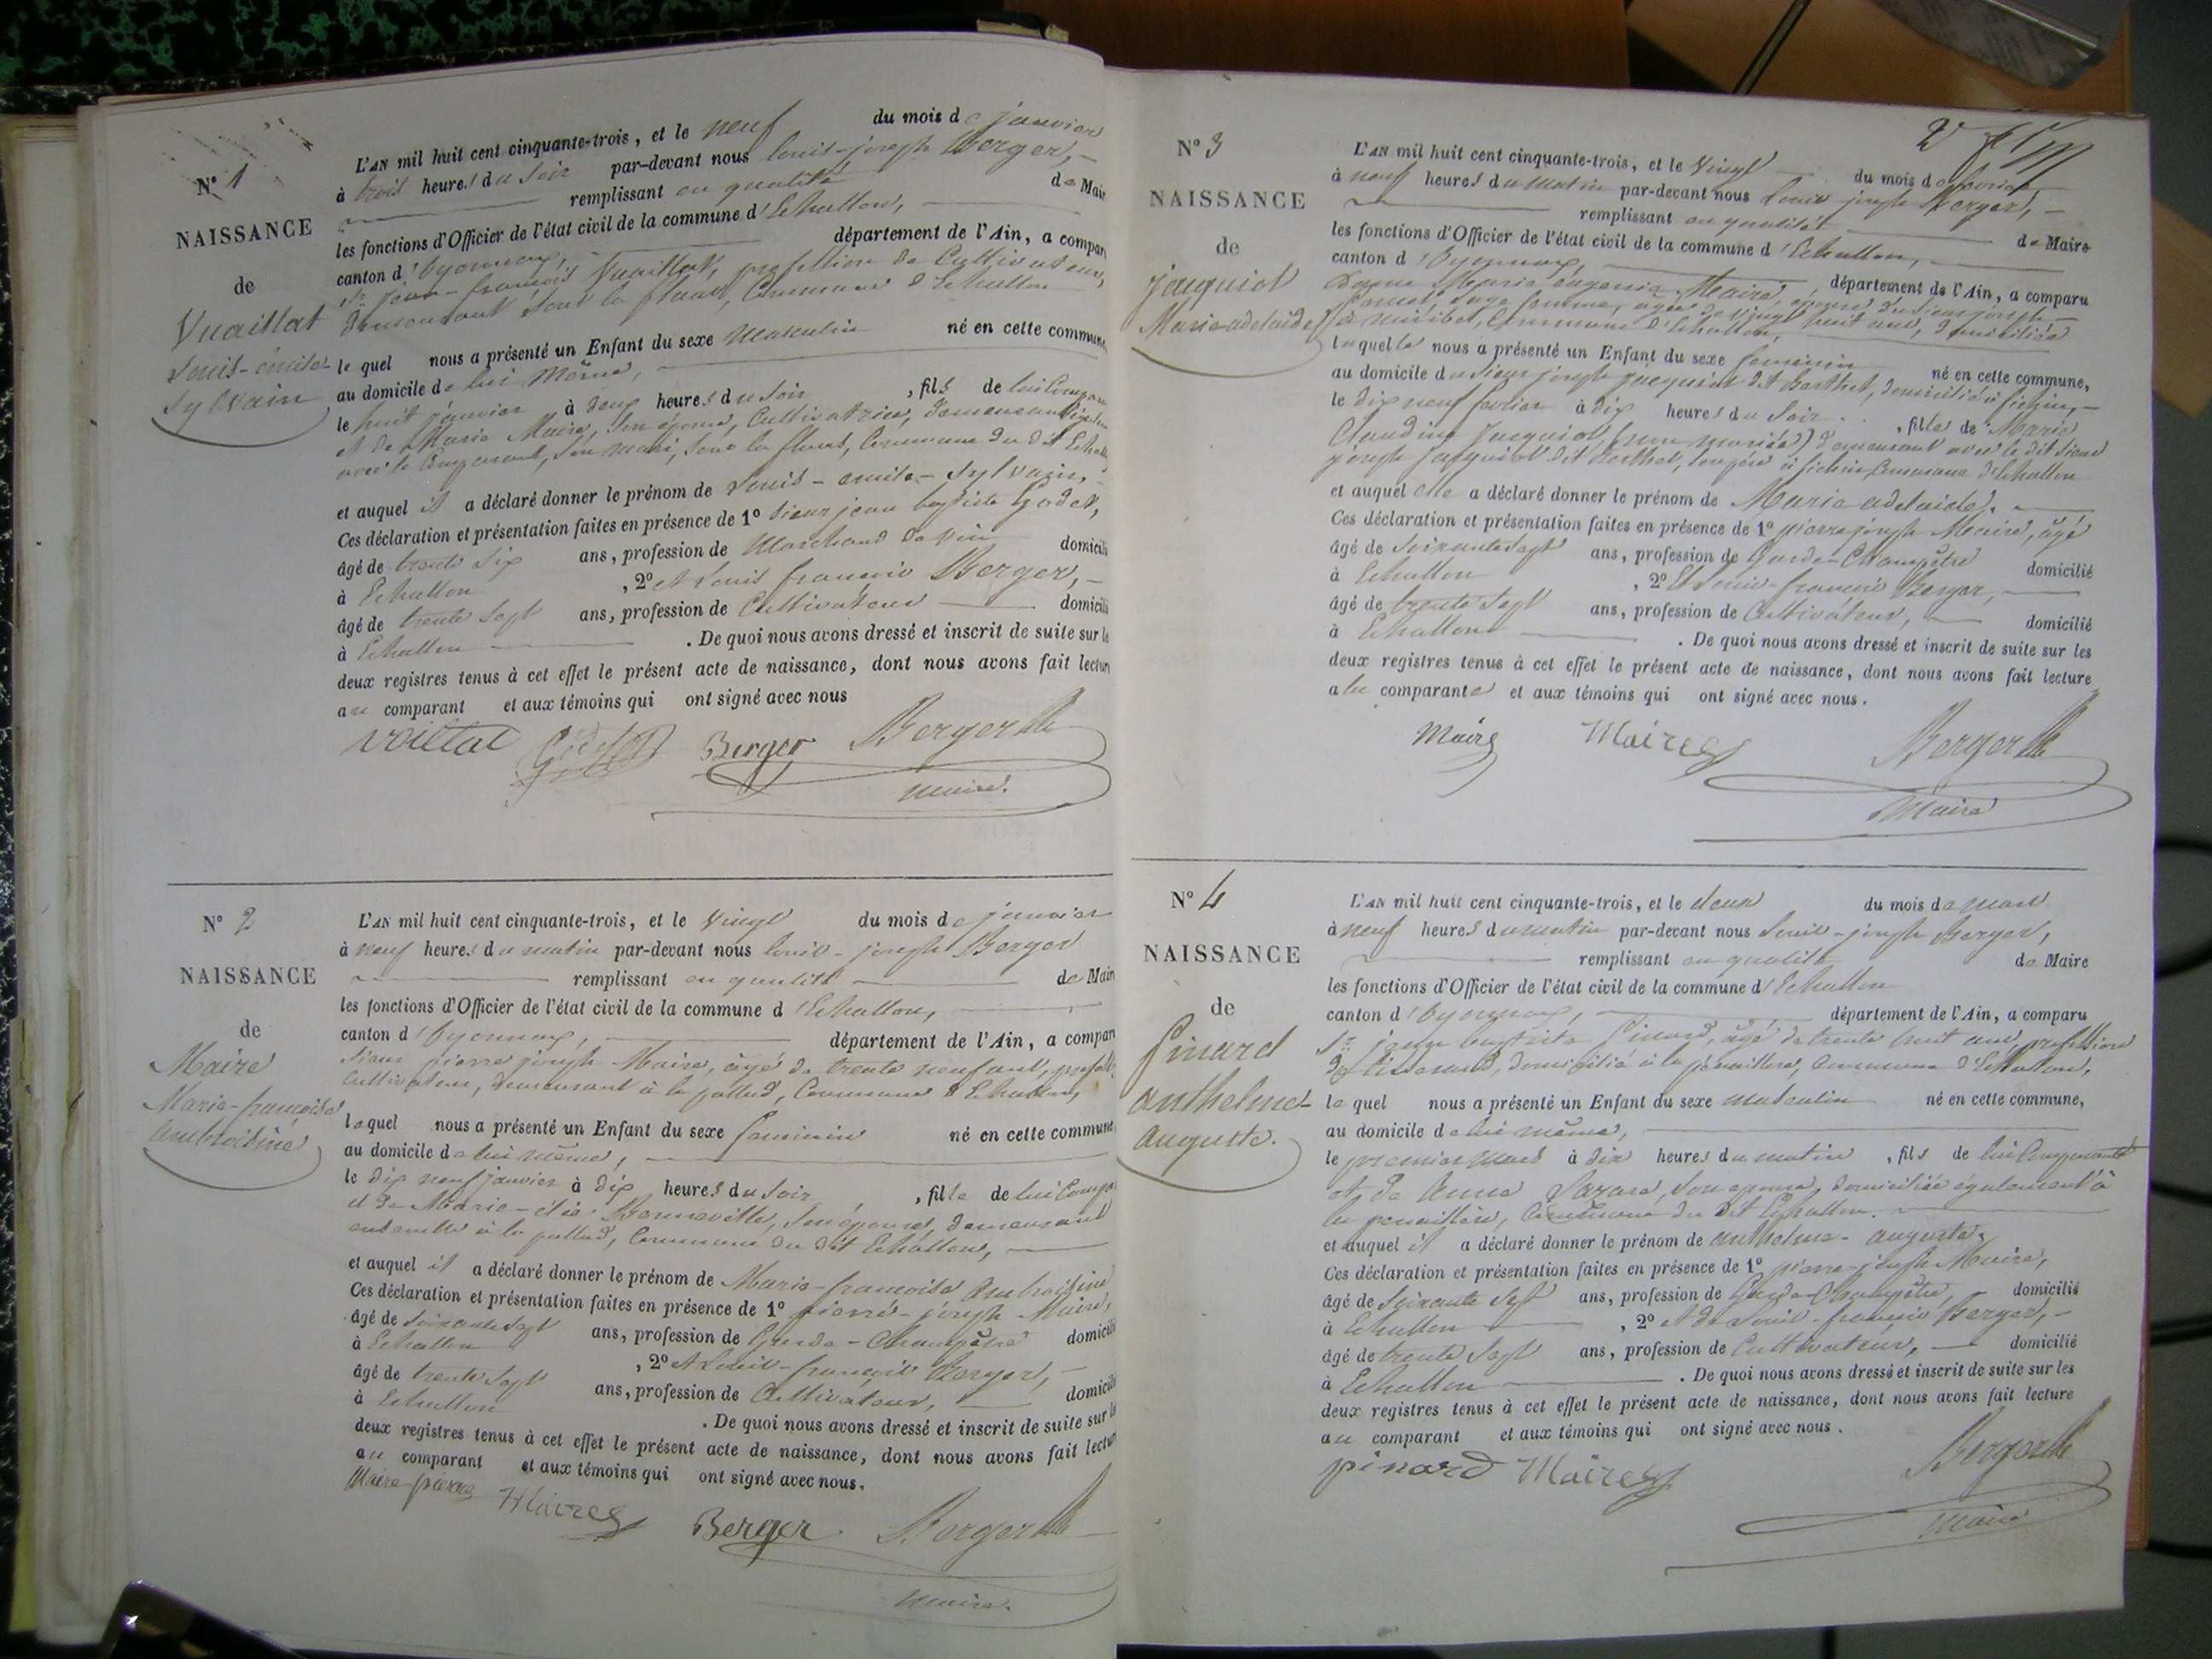 N° 1
NAISSANCE
de
Vuaillat
Louis-émile-
Sylvain
L'AN mil huit cent cinquante-trois, et le neuf du mois de janvier
à trois heures du soir par-devant nous Louis-joseph Berger,
remplissant en qualité de Mair
les fonctions d'Officier de l'état civil de la commune d'Echallon,
canton d'Oyonnax, département de l'Ain, a compar
Sr jean-françois Vuaillat, profession de Cultivateur,
demeurant sous la fleur, Commune d'Echallon
le quel nous a présenté un Enfant du sexe masculin né en cette commune,
au domicile de lui même,
le huit janvier à deux heures du soir, fils de lui Compar
et de Marie Maire, son épouse, Cultivatrice, demeurant
avec le Comparant, son mari, sous la fleur, Commune du dit Echall
et auquel il a déclaré donner le prénom de Louis-émile-Sylvain,
Ces déclaration et présentation faites en présence de 1° Sieur jean baptiste Godet,
âgé de trente six ans, profession de Marchand de vin domicili
à Echallon, 2° et Louis françois Berger,
âgé de trente sept ans, profession de Cultivateur domicili
à Echallon. De quoi nous avons dressé et inscrit de suite sur le
deux registres tenus à cet effet le présent acte de naissance, dont nous avons fait lectur
au comparant et aux témoins qui ont signé avec nous
voillat Godet Berger Berger
maire.
N° 2
NAISSANCE
de
Maire
Marie-françoise
Ambroisine
L'AN mil huit cent cinquante-trois, et le vingt du mois de janvier
à neuf heures du matin par-devant nous Louis-joseph Berger
remplissant en qualité de Mair
les fonctions d'Officier de l'état civil de la commune d'Echallon,
canton d'Oyonnax, département de l'Ain, a compar
Sieur pierre joseph Maire, âgé de trente neuf ans, profess
Cultivateur, demeurant à la pallud, Commune d'Echallon,
lequel nous a présenté un Enfant du sexe féminin né en cette commune
au domicile de lui même,
le dix neuf janvier à dix heures du soir, fille de lui Compar
et de Marie- Bonneville, son épouse, demeurant
ensemble à la pallud, Commune du dit Echallon,
et auquel il a déclaré donner le prénom de Marie-françoise Ambroisine
Ces déclaration et présentation faites en présence de 1° pierre-joseph Maire,
âgé de soixante sept ans, profession de Garde-Champêtre domicili
à Echallon, 2° et Louis-françois Berger,
âgé de trente sept ans, profession de Cultivateur, domicili
à Echallon. De quoi nous avons dressé et inscrit de suite sur le
deux registres tenus à cet effet le présent acte de naissance, dont nous avons fait lectur
au comparant et aux témoins qui ont signé avec nous.
Maire-pierre Maire Berger Berger
maire.
N° 3
NAISSANCE
de
jacquiot
Marie-adelaide
L'AN mil huit cent cinquante-trois, et le vingt du mois de février
à neuf heures du matin par-devant nous Louis joseph Berger,
remplissant en qualité de Maire
les fonctions d'Officier de l'état civil de la commune d'Echallon,
canton d'Oyonnax, département de l'Ain, a comparu
Dame Marie eugenie Maire, épouse du sieur joseph
sage femme, âgée de vingt huit ans, domiciliée
à miribel, Commune d'Echallon,
laquelle nous a présenté un Enfant du sexe féminin né en cette commune,
au domicile du sieur joseph jacquiot dit Berthet, domicilié à
le dix neuf février à dix heures du soir, fille de Marie
Claudine Jacquiot, (non mariée) demeurant avec le dit sieur
joseph Jacquiot dit Berthet, son père à Commune d'Echallon
et auquel elle a déclaré donner le prénom de Marie adelaide.
Ces déclaration et présentation faites en présence de 1° pierre joseph Maire, âgé
âgé de soixante sept ans, profession de Garde-Champêtre domicilié
à Echallon, 2° Et Louis-françois Berger,
âgé de trente sept ans, profession de Cultivateur, domicilié
à Echallon. De quoi nous avons dressé et inscrit de suite sur les
deux registres tenus à cet effet le présent acte de naissance, dont nous avons fait lecture
a la comparante et aux témoins qui ont signé avec nous.
Maire Maire Berger
Maire
N° 4
NAISSANCE
de
pinard
anthelme-
auguste.
L'AN mil huit cent cinquante-trois, et le deux du mois de mars
à neuf heures du matin par-devant nous Louis-joseph Berger,
remplissant en qualité de Maire
les fonctions d'Officier de l'état civil de la commune d'Echallon
canton d'Oyonnax, département de l'Ain, a comparu
Sr jean baptiste Pinard, âgé de trente huit ans, profession
de Tisserand, domicilié à la, Commune d'Echallon,
le quel nous a présenté un Enfant du sexe masculin né en cette commune,
au domicile de lui même,
le premier mars à dix heures du matin, fils de lui Comparant
et de Anne, son épouse, domiciliée également à
la, Commune du dit Echallon.
et auquel il a déclaré donner le prénom de anthelme-auguste.
Ces déclaration et présentation faites en présence de 1° pierre-joseph Maire,
âgé de soixante sept ans, profession de Garde-Champêtre, domicilié
à Echallon, 2° et de Louis-françois Berger,
âgé de trente sept ans, profession de Cultivateur, domicilié
à Echallon. De quoi nous avons dressé et inscrit de suite sur les
deux registres tenus à cet effet le présent acte de naissance, dont nous avons fait lecture
au comparant et aux témoins qui ont signé avec nous.
pinard Maire Berger
Maire